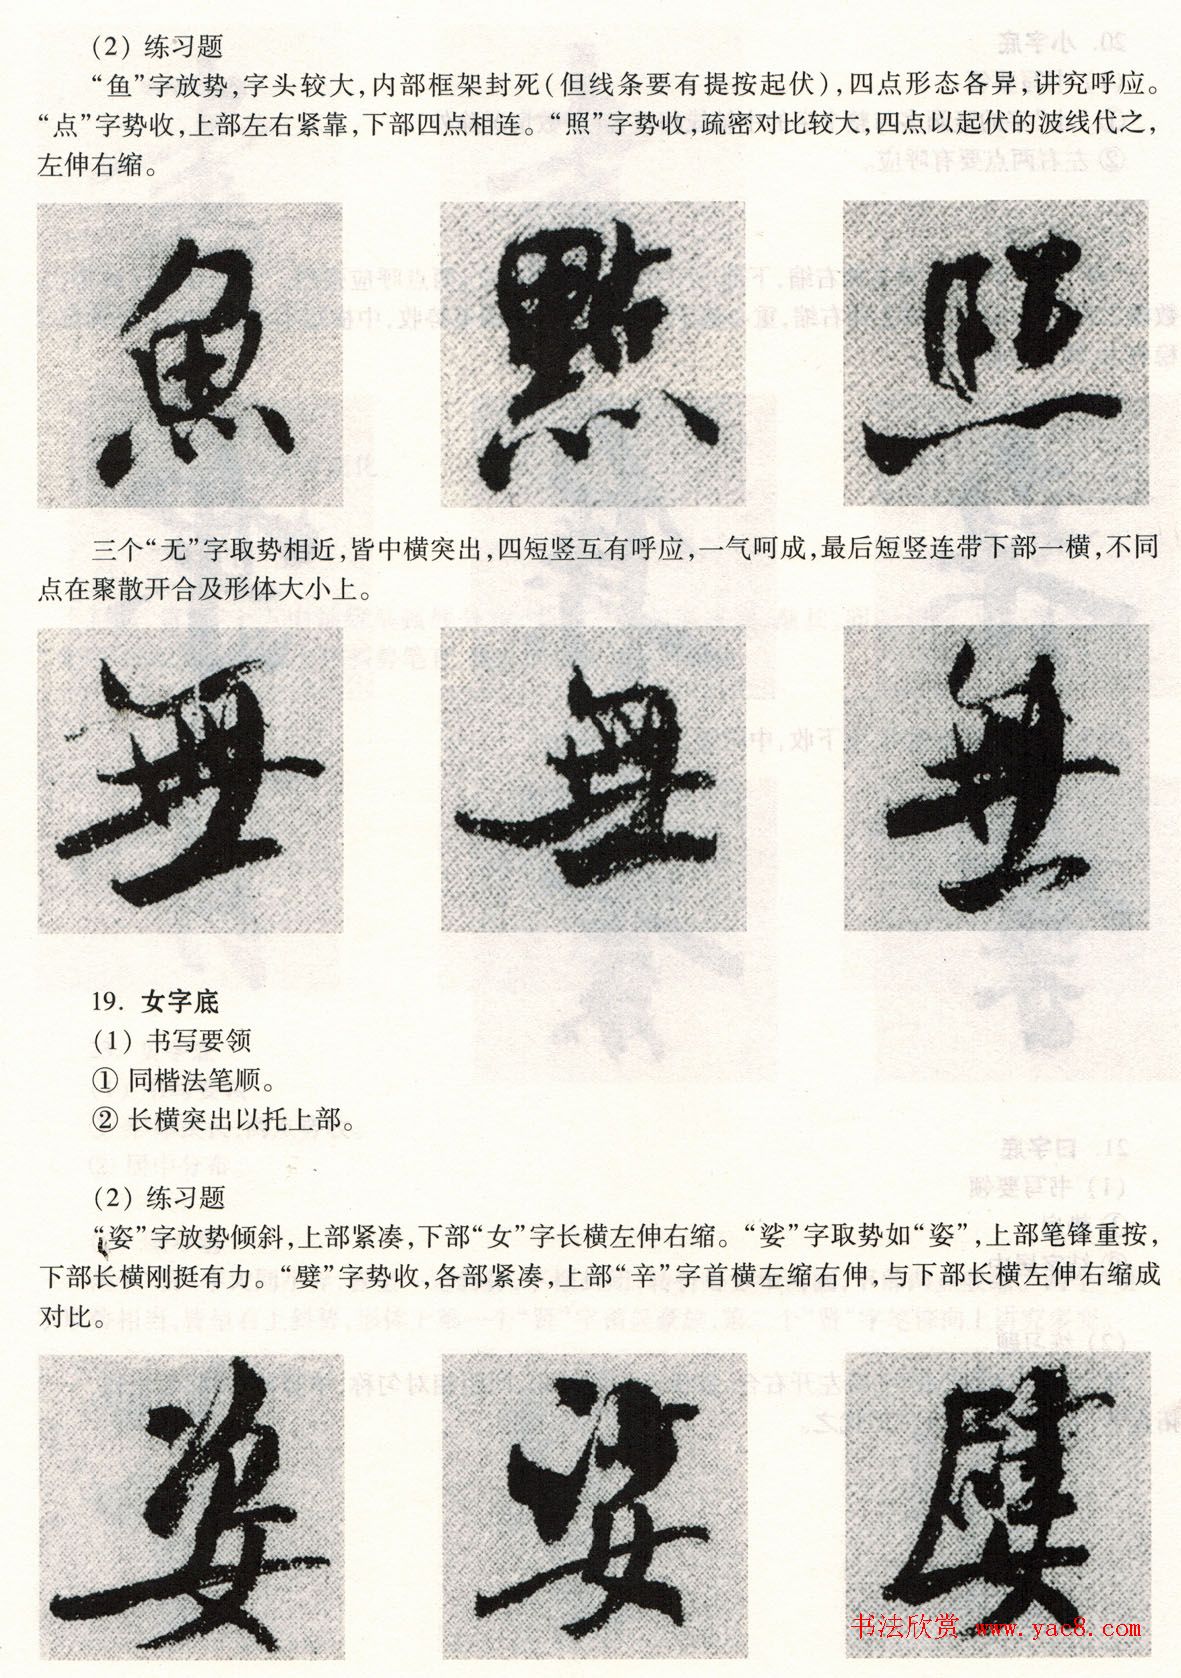 (2) 练习题
“鱼”字放势,字头较大,内部框架封死(但线条要有提按起伏),四点形态各异,讲究呼应。
“点”字势收,上部左右紧靠,下部四点相连。“照”字势收,疏密对比较大,四点以起伏的波线代之,
左伸右缩。
魚 點 照
三个“无”字取势相近,皆中横突出,四短竖互有呼应,一气呵成,最后短竖连带下部一横,不同
点在聚散开合及形体大小上。
無 無 無
19. 女字底
(1) 书写要领
① 同楷法笔顺。
② 长横突出以托上部。
(2) 练习题
“姿”字放势倾斜,上部紧凑,下部“女”字长横左伸右缩。“娑”字取势如“姿”,上部笔锋重按,
下部长横刚挺有力。“嬖”字势收,各部紧凑,上部“辛”字首横左缩右伸,与下部长横左伸右缩成
对比。
姿 娑 嬖
书法欣赏 www.yac8.com